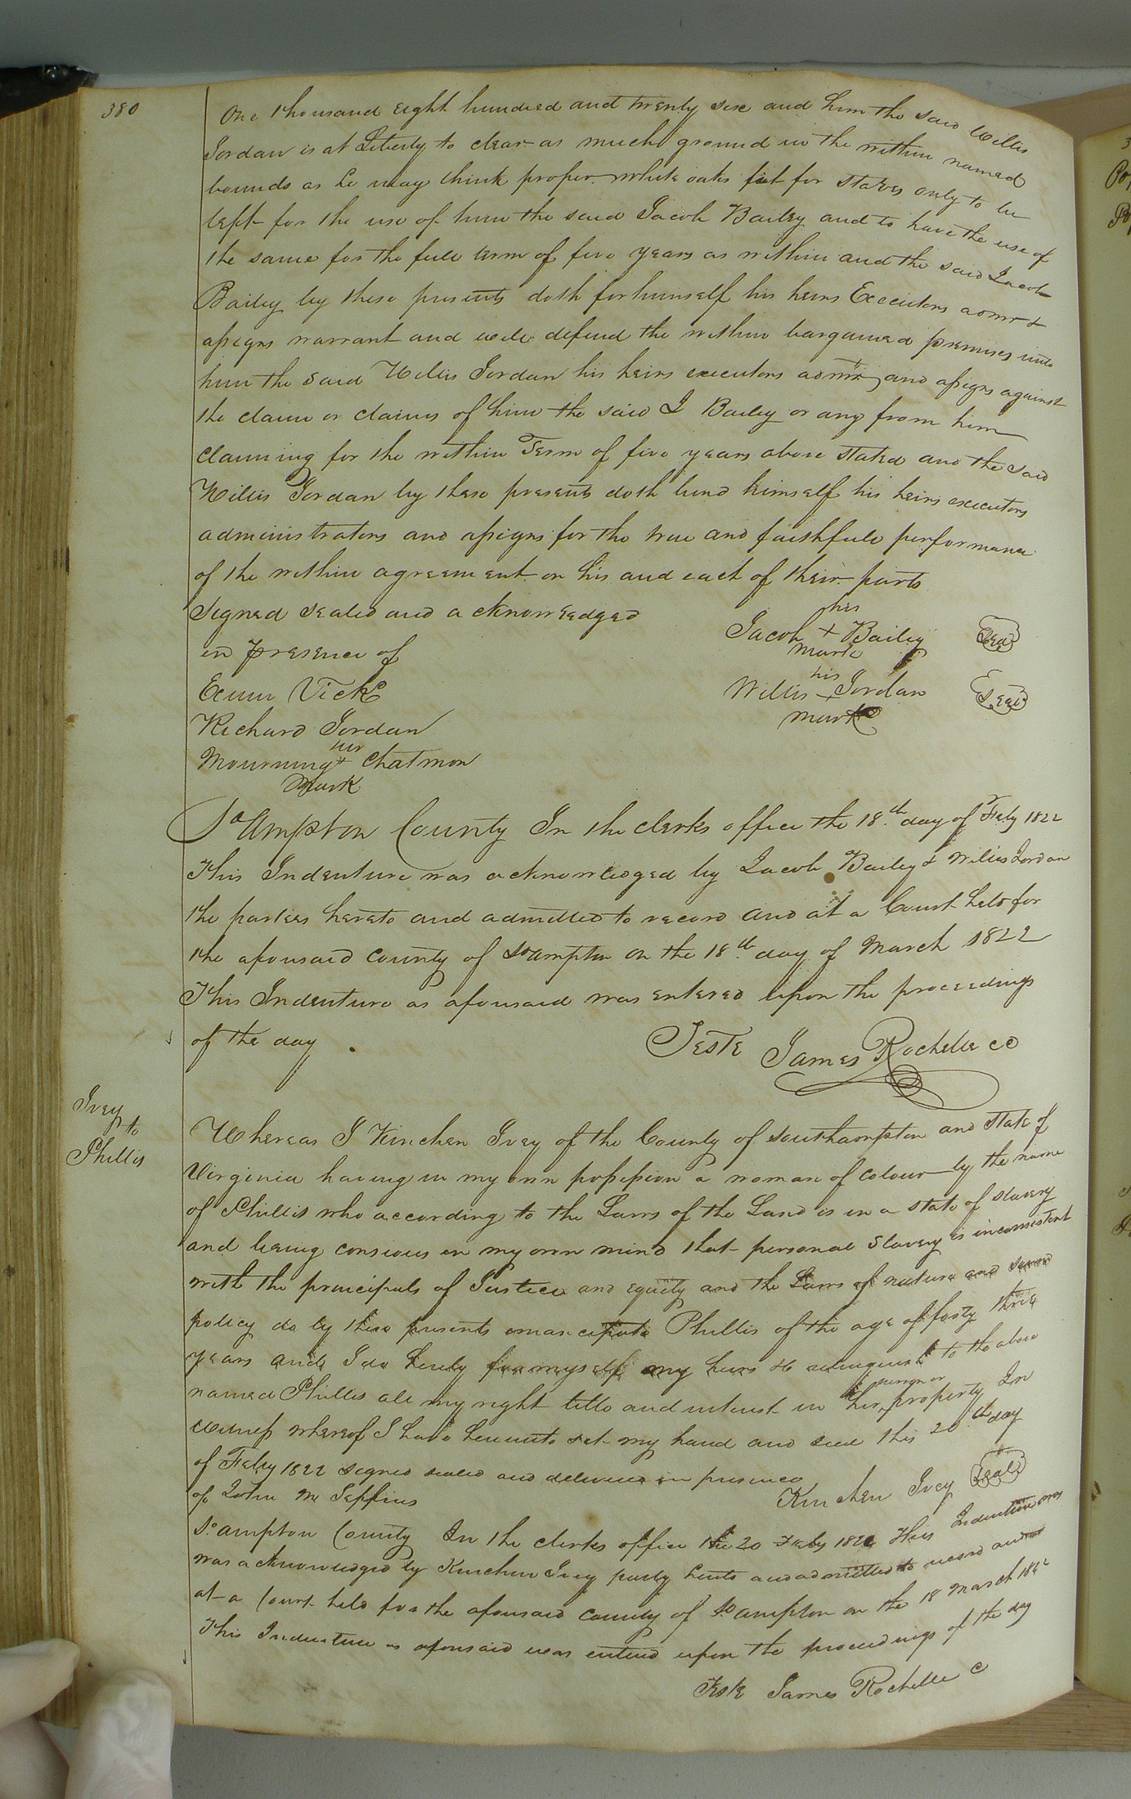 380
One thousand eight hundred and twenty six and him the said Willis
Jordan is at Liberty to clear as much ground in the within named
bounds as he may think proper white oaks fit for staves only to be
left for the use of him the said Jacob Bailey and to have the use of
the same for the full term of five years as within and the said Jacob
Bailey by these presents doth for himself his heirs Executors admr &
assigns warrant and will defend the within bargained premises unto
him the said Willis Jordan his heirs executors admrs and assigns against
the claim or claims of him the said J Bailey or any from him
claiming for the within Term of five years above stated and the said
Willis Jordan by these presents doth bind himself his heirs executors
administrators and assigns for the true and faithfull performance
of the within agreement on his and each of their parts
Signed sealed and acknowledged
in presence of
Exum Vick
Richard Jordan
Mourning her + mark Chatmon
Jacob his + mark Bailey Seal
Willis his + mark Jordan Seal
So Ampton County In the clerks office the 18th day of Feby 1822
This Indenture was acknowledged by Jacob Bailey & Willis Jordan
the parties hereto and admitted to record and at a Court held for
the aforesaid county of Soampton on the 18th day of March 1822
This Indenture as aforesaid was entered upon the proceedings
of the day
Teste James Rochelle CC
Ivey
to
Phillis
Whereas I Kinchen Ivey of the County of Southampton and State of
Virginia having in my own possession a woman of colour by the name
of Phillis who according to the Laws of the Land is in a state of slavery
and being conscious in my own mind that personal slavery is inconsistent
with the principals of Justice and equity and the Laws of nature and sound
policy do by these presents emancipate Phillis of the age of forty three
years and I do hereby for myself my heirs &c relinquish to the above
named Phillis all my right title and interest in her person or property In
witness whereof I have hereunto set my hand and seal this 20th day
of Feby 1822 signed sealed and delivered in presence
of John M Jeffries
Kinchen Ivey Seal
So ampton County In the clerks office the 20 Feby 1822 This Indenture was
was acknowledged by Kinchen Ivey party hereto and admitted to record and
at a Court held for the aforesaid county of Soampton on the 18 March 182
This Indenture as aforesaid was entered upon the proceedings of the day
Teste James Rochelle C